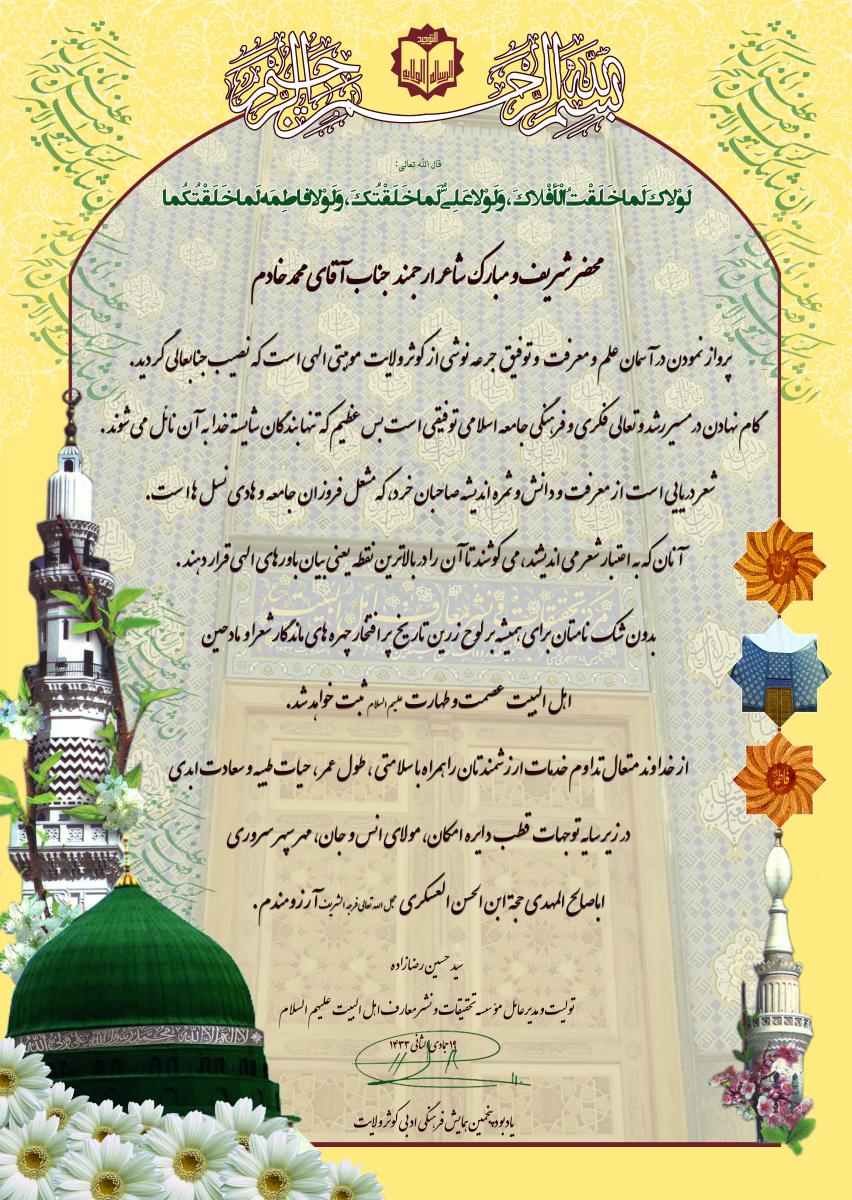 بسم الله الرحمن الرحیم
التوحید
الرسالة الولایة
قال الله تعالی:
لَوْلاکَ لَما خَلَقْتُ الْأَفْلاکَ، وَلَوْلا عَلِیٌّ لَما خَلَقْتُکَ، وَلَوْلا فاطِمَه لَما خَلَقْتُکُما
محضر شریف و مبارک شاعر ارجمند جناب آقای محمد خادم
پرواز نمودن در آسمان علم و معرفت و توفیق جرعه نوشی از کوثر ولایت موهبتی الهی است که نصیب جنابعالی گردید.
گام نهادن در مسیر رشد و تعالی فکری و فرهنگی جامعه اسلامی توفیقی است بس عظیم که تنها بندگان شایسته خدا به آن نائل می شوند.
شعر دریایی است از معرفت و دانش و ثمره اندیشه صاحبان خرد، که مشعل فروزان جامعه و هادی نسل هاست.
آنان که به اعتبار شعر می اندیشند، می کوشند تا آن را در بالاترین نقطه یعنی بیان باورهای الهی قرار دهند.
بدون شک نامتان برای همیشه بر لوح زرین تاریخ پر افتخار چهره های ماندگار شعرا و مادحین
اهل البیت عصمت و طهارت علیهم السلام ثبت خواهد شد.
از خداوند متعال تداوم خدمات ارزشمندتان را همراه با سلامتی، طول عمر، حیات طیبه و سعادت ابدی
در زیر سایه توجهات قطب دایره امکان، مولای انس و جان، مهر سپهر سروری
اباصالح المهدی حجة ابن الحسن العسکری عجل الله تعالی فرجه الشریف آرزومندم.
سید حسین رضازاده
تولیت و مدیر عامل مؤسسه تحقیقات و نشر معارف اهل البیت علیهم السلام
۱۹ جمادی الثانی ۱۴۳۳
یادبود پنجمین همایش فرهنگی ادبی کوثر ولایت
علی
فاطمة